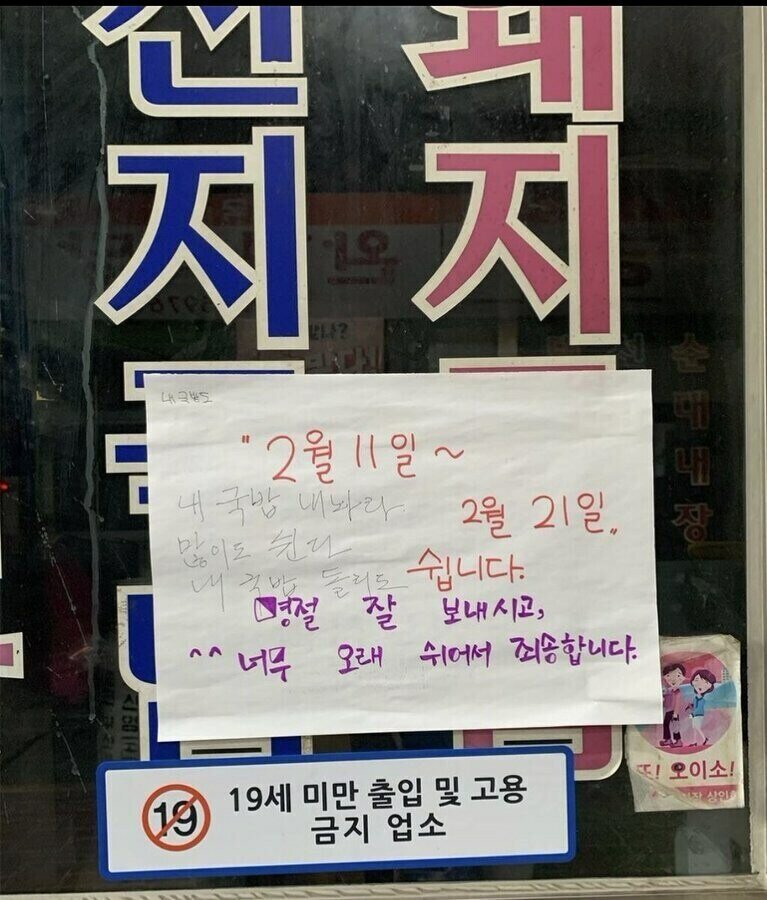 선지
돼지
순대내장
내 국밥도
"2월 11일 ~
내 국밥 내놔라
2월 21일"
많이도 쉰다
쉽니다.
내 국밥 돌리도
명절 잘 보내시고,
^^ 너무 오래 쉬어서 죄송합니다.
또! 오이소!
19 19세 미만 출입 및 고용
금지 업소